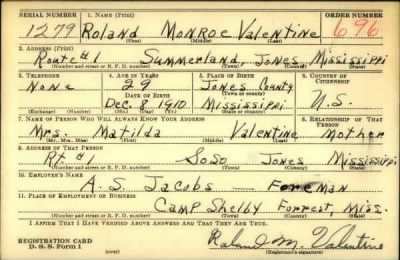 SERIAL NUMBER 1. NAME (Print) ORDER NUMBER
1279 Roland Monroe Valentine 696
(First) (Middle) (Last)
2. ADDRESS (Print)
Route #1 Summerland, Jones, Mississippi
(Number and street or R. F. D. number) (Town) (County) (State)
3. TELEPHONE 4. AGE IN YEARS 5. PLACE OF BIRTH 6. COUNTRY OF CITIZENSHIP
None 29 Jones County
DATE OF BIRTH (Town or county)
Dec. 8 1910 Mississippi U.S.
(Exchange) (Number) (Mo.) (Day) (Yr.) (State or country)
7. NAME OF PERSON WHO WILL ALWAYS KNOW YOUR ADDRESS 8. RELATIONSHIP OF THAT PERSON
Mrs. Matilda Valentine Mother
(Mr., Mrs., Miss) (First) (Middle) (Last)
9. ADDRESS OF THAT PERSON
Rt #1 Soso Jones Mississippi
(Number and street or R. F. D. number) (Town) (County) (State)
10. EMPLOYER'S NAME
A. S. Jacobs — Foreman
11. PLACE OF EMPLOYMENT OR BUSINESS
Camp Shelby Forrest, Miss.
(Number and street or R. F. D. number) (Town) (County) (State)
I AFFIRM THAT I HAVE VERIFIED ABOVE ANSWERS AND THAT THEY ARE TRUE.
REGISTRATION CARD
D. S. S. Form 1 (over) Roland M. Valentine
(Registrant's signature)